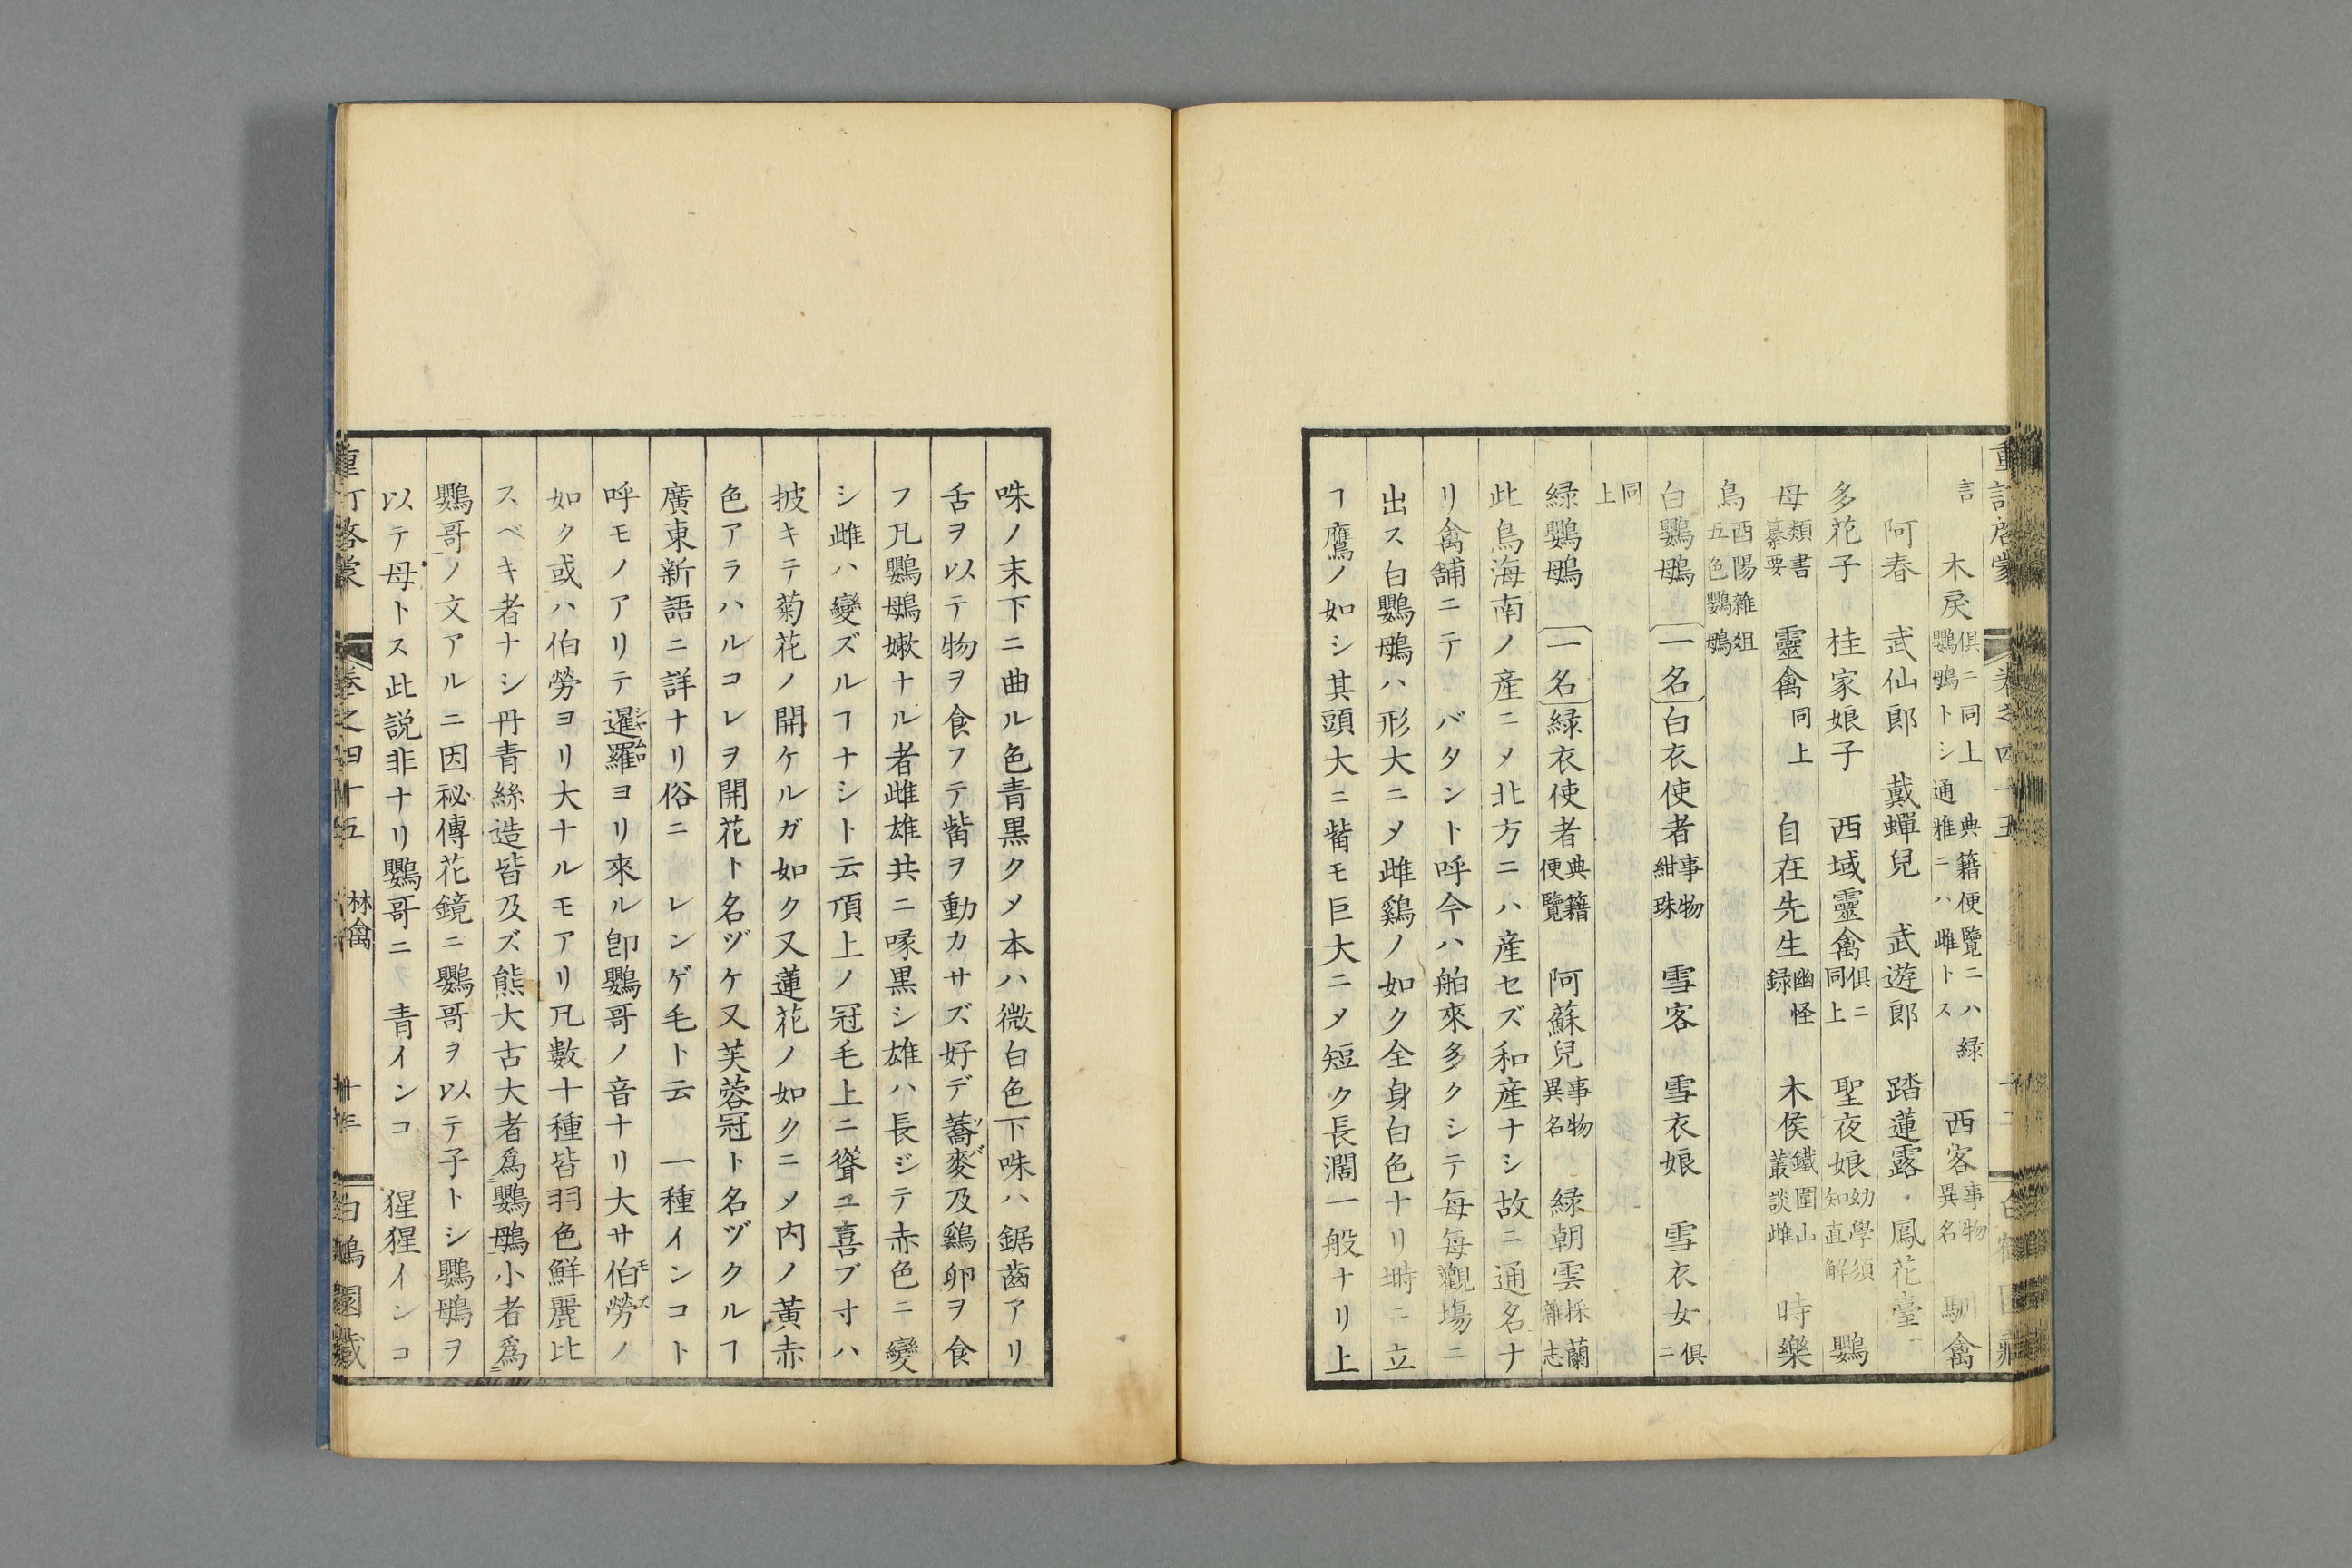 重訂啓蒙 卷之四十五
言 木戾 俱ニ同上 典籍便覽ニハ緑鸚䳇トシ通雅ニハ雌トス 西客 事物異名 馴禽
阿春 武仙郎 戴蟬兒 武遊郎 踏蓮露 鳳花臺
多花子 桂家娘子 西域靈禽 俱ニ同上 聖夜娘 幼學須知直解 鸚
母 類書纂要 靈禽 同上 自在先生 幽怪録 木侯 鐵圍山叢談雌 時樂
鳥 酉陽雜俎五色鸚䳇
白鸚䳇 〔一名〕白衣使者 事物紺珠 雪客 雪衣娘 雪衣女 俱ニ
同上
緑鸚䳇 〔一名〕緑衣使者 典籍便覽 阿蘇兒 事物異名 緑朝雲 採蘭雜志
此鳥海南ノ産ニメ北方ニハ産セズ和産ナシ故ニ通名ナ
リ禽舗ニテ バタント呼今ハ舶來多クシテ毎毎觀塲ニ
出ス白鸚䳇ハ形大ニメ雌鷄ノ如ク全身白色ナリ塒ニ立
ヿ鷹ノ如シ其頭大ニ觜モ巨大ニメ短ク長濶一般ナリ上
咮ノ末下ニ曲ル色青黒クメ本ハ微白色下咮ハ鋸齒アリ
舌ヲ以テ物ヲ食フテ觜ヲ動カサズ好デ蕎麥ソバ及鷄卵ヲ食
フ凡鸚䳇嫰ナル者雌雄共ニ喙黒シ雄ハ長ジテ赤色ニ變
シ雌ハ變ズルヿナシト云頂上ノ冠毛上ニ聳ユ喜ブ寸ハ
披キテ菊花ノ開ケルガ如ク又蓮花ノ如クニメ内ノ黃赤
色アラハルコレヲ開花ト名ヅケ又芙蓉冠ト名ヅクルヿ
廣東新語ニ詳ナリ俗ニ レンゲ毛ト云 一種インコト
呼モノアリテ暹羅シヤムロヨリ來ル卽鸚哥ノ音ナリ大サ伯勞モズノ
如ク或ハ伯勞ヨリ大ナルモアリ凡數十種皆羽色鮮麗比
スベキ者ナシ丹青絲造皆及ズ熊大古大者爲鸚䳇小者爲
鸚哥ノ文アルニ因祕傳花鏡ニ鸚哥ヲ以テ子トシ鸚䳇ヲ
以テ母トス此説非ナリ鸚哥ニ 青インコ 猩猩インコ
重訂啓蒙 卷之四十五 林禽 白鶴園藏